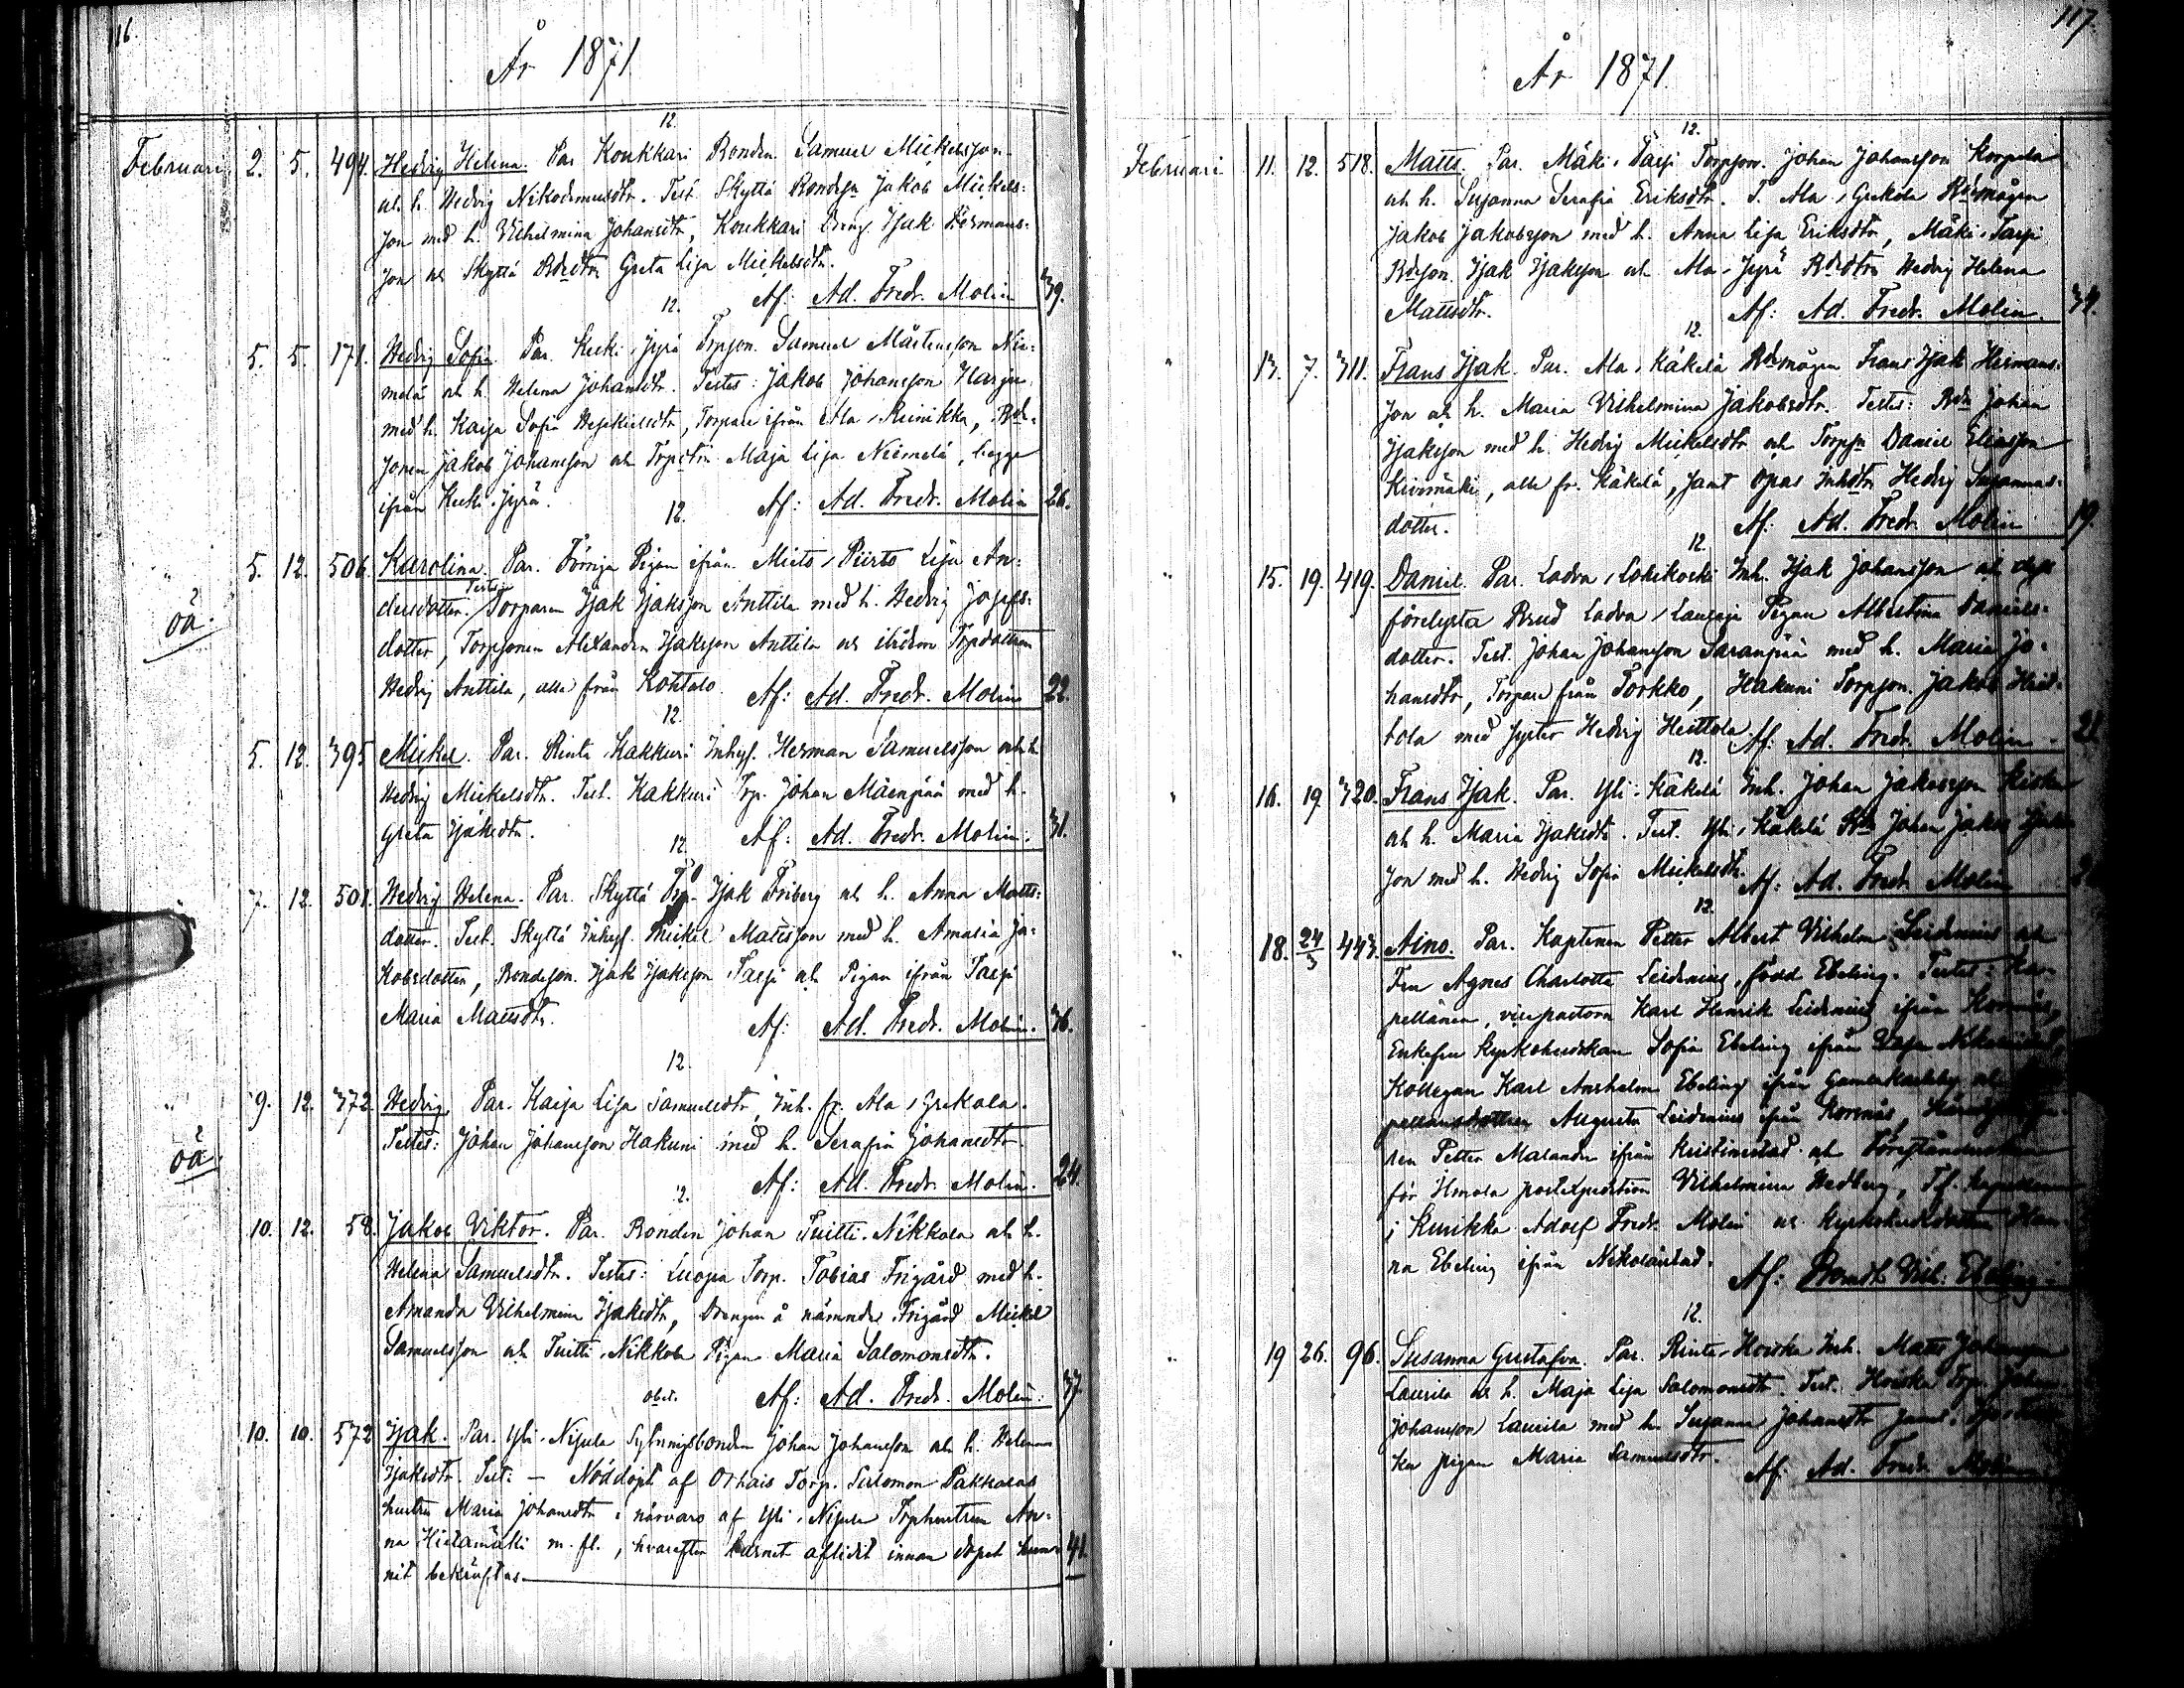 116.
År 1871
12.
Februari 2. 5. 494. Hedvig Helena. Par. Koukkari Bonden Samuel Mickelsson
och h. Hedvig Nikodemusdtr. Test. Skyttä Bondesn Jakob Mickels-
son med h. Vilhelmina Johansdtr, Koukkari dreng Isak Hermans-
son och Skyttä Bdedtr Greta Lisa Mickelsdtr.
Af: Ad. Fredr. Molin 39.
12.
5. 5. 171. Hedvig Sofia. Par. Keski-Jyrä Torpson. Samuel Mårtensson Nie-
melä och h. Helena Johansdtr. Testes: Jakob Johansson Harju
med h. Kaisa Sofia Hesekielsdtr, Torpare ifrån Ala-Reinikka, Bde-
sonen Jakob Johansson och Torpdtrn Maja Lisa Niemelä, begge
ifrån Keski-Jyrä.
Af: Ad. Fredr. Molin 26.
12.
" 5. 12. 506. Karolina. Par. Förriga Pigan ifrån Mieto-Piirto Lisa An-
oä. dersdotter. Testes Torparen Isak Isaksson Anttila med h. Hedvig Josefs-
dotter, Torpsonen Alexander Isaksson Anttila och Torpdottren
Hedvig Anttila, alla från Kohtalo. Af: Ad. Fredr. Molin 22.
12.
5. 12. 395 Mickel. Par. Rinta-Kakkuri Inhys. Herman Samuelsson och h.
Hedvig Mickelsdtr. Test. Kakkuri Trp. Johan Mäenpää med h.
Greta Isaksdtr. Af: Ad. Fredr. Molin. 31.
12.
7. 12. 501. Hedvig Helena. Par. Skyttä Trp. Isak Friberg och h. Anna Matts-
dotter. Test. Skyttä Inhys. Mickel Mattsson med h. Amalia Ja-
kobsdotter, Bondeson. Isak Isaksson Tarsi och Pigan ifrån Tarsi
Maria Mattsdtr. Af: Ad. Fredr. Molin. 36.
12.
" 9. 12. 372. Hedvig. Par. Kaisa Lisa Samuelsdtr, Inh. fr. Ala-Grekola.
oä. Testes: Johan Johansson Hakuni med h. Serafia Johansdtr.
Af: Ad. Fredr. Molin. 24.
12.
10. 12. 58. Jakob Viktor. Par. Bonden Johan Tuitti-Nikkola och h.
Helena Samuelsdtr. Testes: Luopa Torp. Tobias Frigård med h.
Amanda Vilhelmina Isaksdtr, Drengen å nämnde Frigård Mickel
Samuelsson och Tuitti-Nikkola Pigan Maria Salomonsdtr.
Af: Ad. Fredr. Molin. 37
obst.
10. 10. 572 Isak. Par. Yli-Nisula Sytningsbonden Johan Johansson och h. Helena
Isaksdtr. Test: — Nöddöpt af Orhais Torp. Salomon Pakkalas
hustru Maria Johansdtr i närvaro af Yli-Nisula Torphustrun An-
na Hietamäki m. fl., hvarefter barnet aflidit innan dopet hun- 41.
nit bekräftas.
117.
År 1871.
12.
Februari 11. 12. 518. Matts. Par. Mäki-Tarsi Torpson. Johan Johansson Korpela
och h. Susanna Serafia Eriksdtr. T. Ala-Grekola Bdemågen
Jakob Jakobsson med h. Anna Lisa Eriksdtr, Mäki-Tarsi
Bdeson. Isak Isaksson och Ala-Jyrä Bdedtrn Hedvig Helena
Mattsdtr. Af: Ad. Fredr. Molin. 34.
12.
" 13. 7. 311. Frans Isak. Par. Ala-Käkelä Bdemågen Frans Isak Hermans-
son och h. Maria Vilhelmina Jakobsdtr. Testes: Bdn Johan
Isaksson med h. Hedvig Mickelsdtr och Torpsn Daniel Eliasson
Kivimäki, alla fr. Käkelä, samt Opas Inhdtr Hedvig Susannas-
dotter. Af: Ad. Fredr. Molin 19.
12.
" 15. 19. 419. Daniel. Par. Ladva-Lokikoski Inh. Isak Johansson och dess
förelysta Brud Ladva-Pigan Albertina Daniels-
dotter. Test. Johan Johansson Saranpää med h. Maria Jo-
hansdtr, Torpare från Torkko, Hakuni Torpson. Jakob Heit-
tola med syster Hedvig Heittola. Af: Ad. Fredr. Molin. 21
12.
" 16. 19 320. Frans Isak. Par. Yli-Käkelä Inh. Johan Jakobsson
och h. Maria Isaksdtr. Test. Yli-Käkelä Bdn Johan Jakob
son med h. Hedvig Sofia Mickelsdtr. Af: Ad. Fredr. Molin
12.
" 18. 24/3 443. Aino. Par. Kaptenen Petter Albert Vilhelm Leidenius och
Fru Agnes Charlotta Leidenius, född Ebeling. Testes: Ka-
pellanen, vicepastorn Karl Henrik Leidenius ifrån Korsnäs,
Enkefru Kyrkoherdskan Sofia Ebeling ifrån Vasa
Kollegan Karl Anshelm Ebeling ifrån Gamlakarleby
Augusta Leidenius ifrån Korsnäs,
ren Petter Malander ifrån Kristinestad och Föreståndarinnan
för Ilmola postexpedition Vilhelmina Hedberg, Tf. Kapellanen
i Kurikka Adolf Fredr. Molin och Kyrkoherdedottren Han-
na Ebeling ifrån Nikolaistad.
Af: Ebeling
12.
" 19 26. 96. Susanna Gustafva. Par. Rinta-Hoiska Inh. Matts Johansson
Laurila och h. Maja Lisa Salomonsdtr. Test. Hoiska Trp. Johan
Johansson Laurila med h. Susanna Johansdtr samt
ka pigan Maria Samuelsdtr. Af: Ad. Fredr. Molin